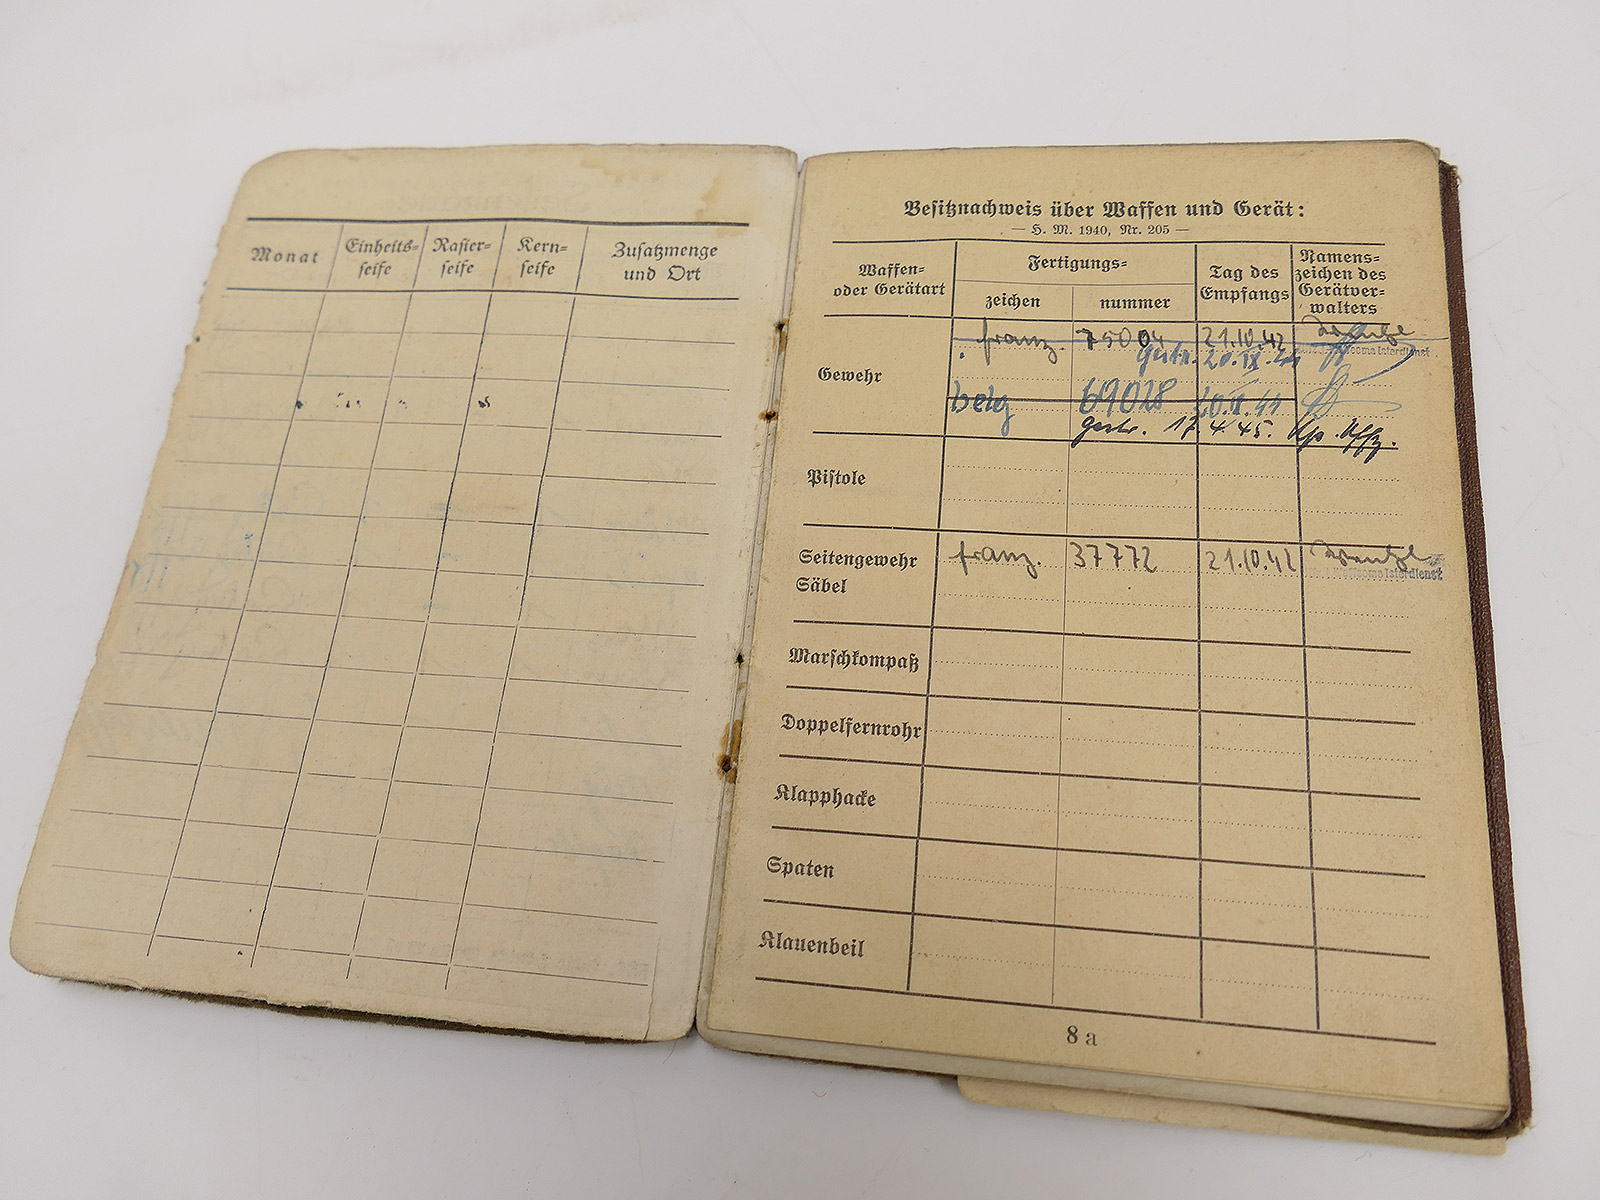 Monat Einheits= seife Rasier= seife Kern= seife Zusatzmenge und Ort
Besitznachweis über Waffen und Gerät:
— H. M. 1940, Nr. 205 —
Waffen= oder Gerätart
Fertigungs=
zeichen nummer
Tag des Empfangs
Namens= zeichen des Gerätver= walters
franz. 75004 21.10.42
gestr. 20.IX.44
Gewehr
belg 69028 20.IX.44
gestr. 17.4.45. Uffz.
Pistole
Seitengewehr franz. 37772 21.10.42
Säbel
Marschkompaß
Doppelfernrohr
Klapphacke
Spaten
Klauenbeil
8a